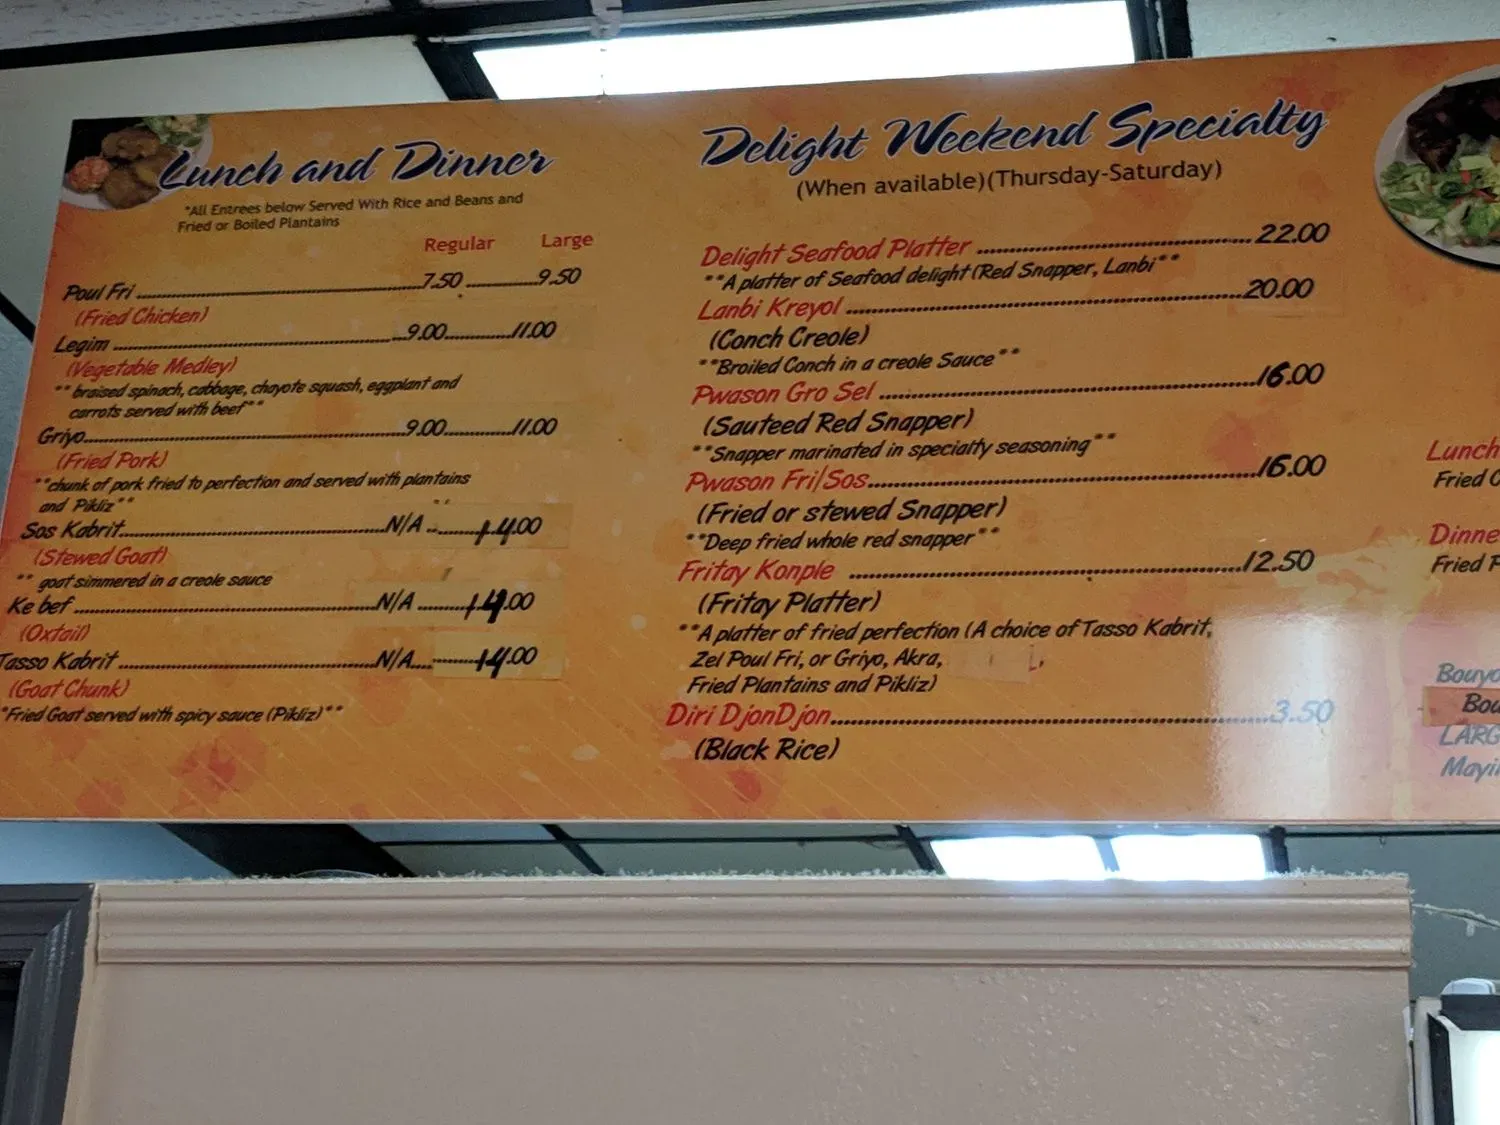 Lunch and Dinner
*All Entrees below Served With Rice and Beans and
Fried or Boiled Plantains
Regular Large
Poul Fri 7.50 9.50
(Fried Chicken)
Legim 9.00 11.00
(Vegetable Medley)
** braised spinach, cabbage, chayote squash, eggplant and
carrots served with beef**
Griyo 9.00 11.00
(Fried Pork)
**chunk of pork fried to perfection and served with plantains
and Pikliz**
Sos Kabrit N/A 14.00
(Stewed Goat)
** goat simmered in a creole sauce
Ke bef N/A 14.00
(Oxtail)
Tasso Kabrit N/A 14.00
(Goat Chunk)
*Fried Goat served with spicy sauce (Pikliz)**
Delight Weekend Specialty
(When available)(Thursday-Saturday)
Delight Seafood Platter 22.00
**A platter of Seafood delight (Red Snapper, Lanbi**
Lanbi Kreyol 20.00
(Conch Creole)
**Broiled Conch in a creole Sauce**
Pwason Gro Sel 16.00
(Sauteed Red Snapper)
**Snapper marinated in specialty seasoning**
Pwason Fri/Sos 16.00
(Fried or stewed Snapper)
**Deep fried whole red snapper**
Fritay Konple 12.50
(Fritay Platter)
**A platter of fried perfection (A choice of Tasso Kabrit,
Zel Poul Fri, or Griyo, Akra,
Fried Plantains and Pikliz)
Diri DjonDjon 3.50
(Black Rice)
Lunch
Fried
Fried